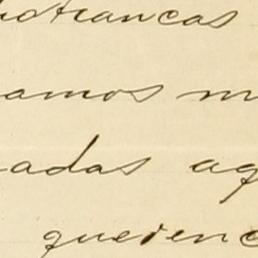 botrancas
amos m
adas ag
querenc